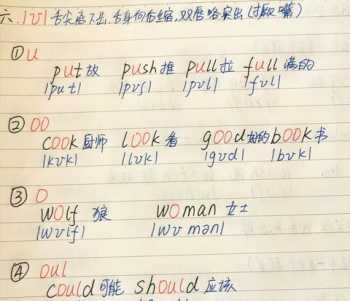 六. /ʊ/ 舌尖离下齿,舌身向后缩,双唇略突出(撅嘴)
① u
put 放 push 推 pull 拉 full 满的
|put| |pʊʃ| |pʊl| |fʊl|
② oo
cook 厨师 look 看 good 好的 book 书
|kʊk| |lʊk| |gʊd| |bʊk|
③ o
wolf 狼 woman 女士
|wʊlf| |wʊ mən|
④ oul
could 可能 should 应该